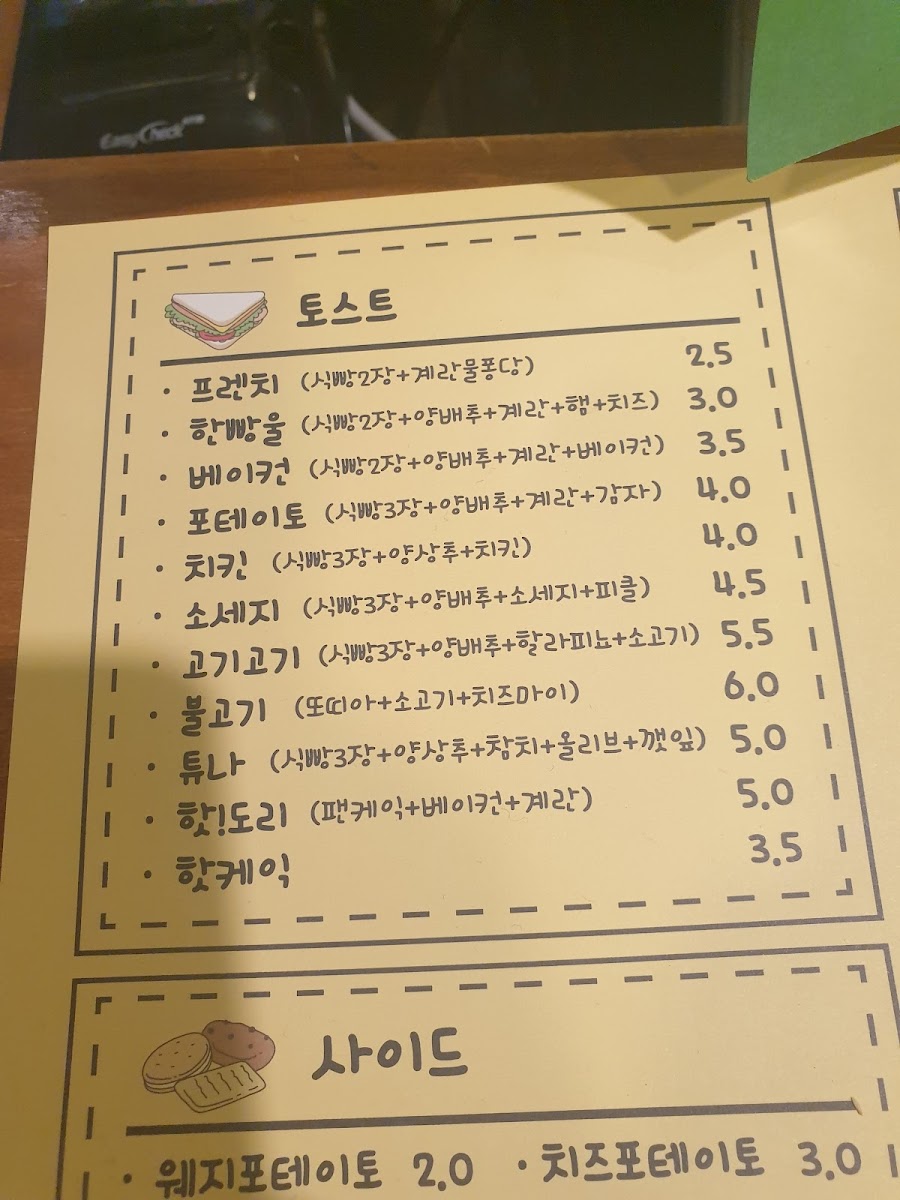 EasyCheck
토스트
· 프렌치 (식빵2장+계란물퐁당) 2.5
· 한빵울 (식빵2장+양배추+계란+햄+치즈) 3.0
· 베이컨 (식빵2장+양배추+계란+베이컨) 3.5
· 포테이토 (식빵3장+양배추+계란+감자) 4.0
· 치킨 (식빵3장+양상추+치킨) 4.0
· 소세지 (식빵3장+양배추+소세지+피클) 4.5
· 고기고기 (식빵3장+양배추+할라피뇨+소고기) 5.5
· 불고기 (또띠아+소고기+치즈마이) 6.0
· 튜나 (식빵3장+양상추+참치+올리브+깻잎) 5.0
· 핫!도리 (팬케익+베이컨+계란) 5.0
· 핫케익 3.5
사이드
· 웨지포테이토 2.0 · 치즈포테이토 3.0